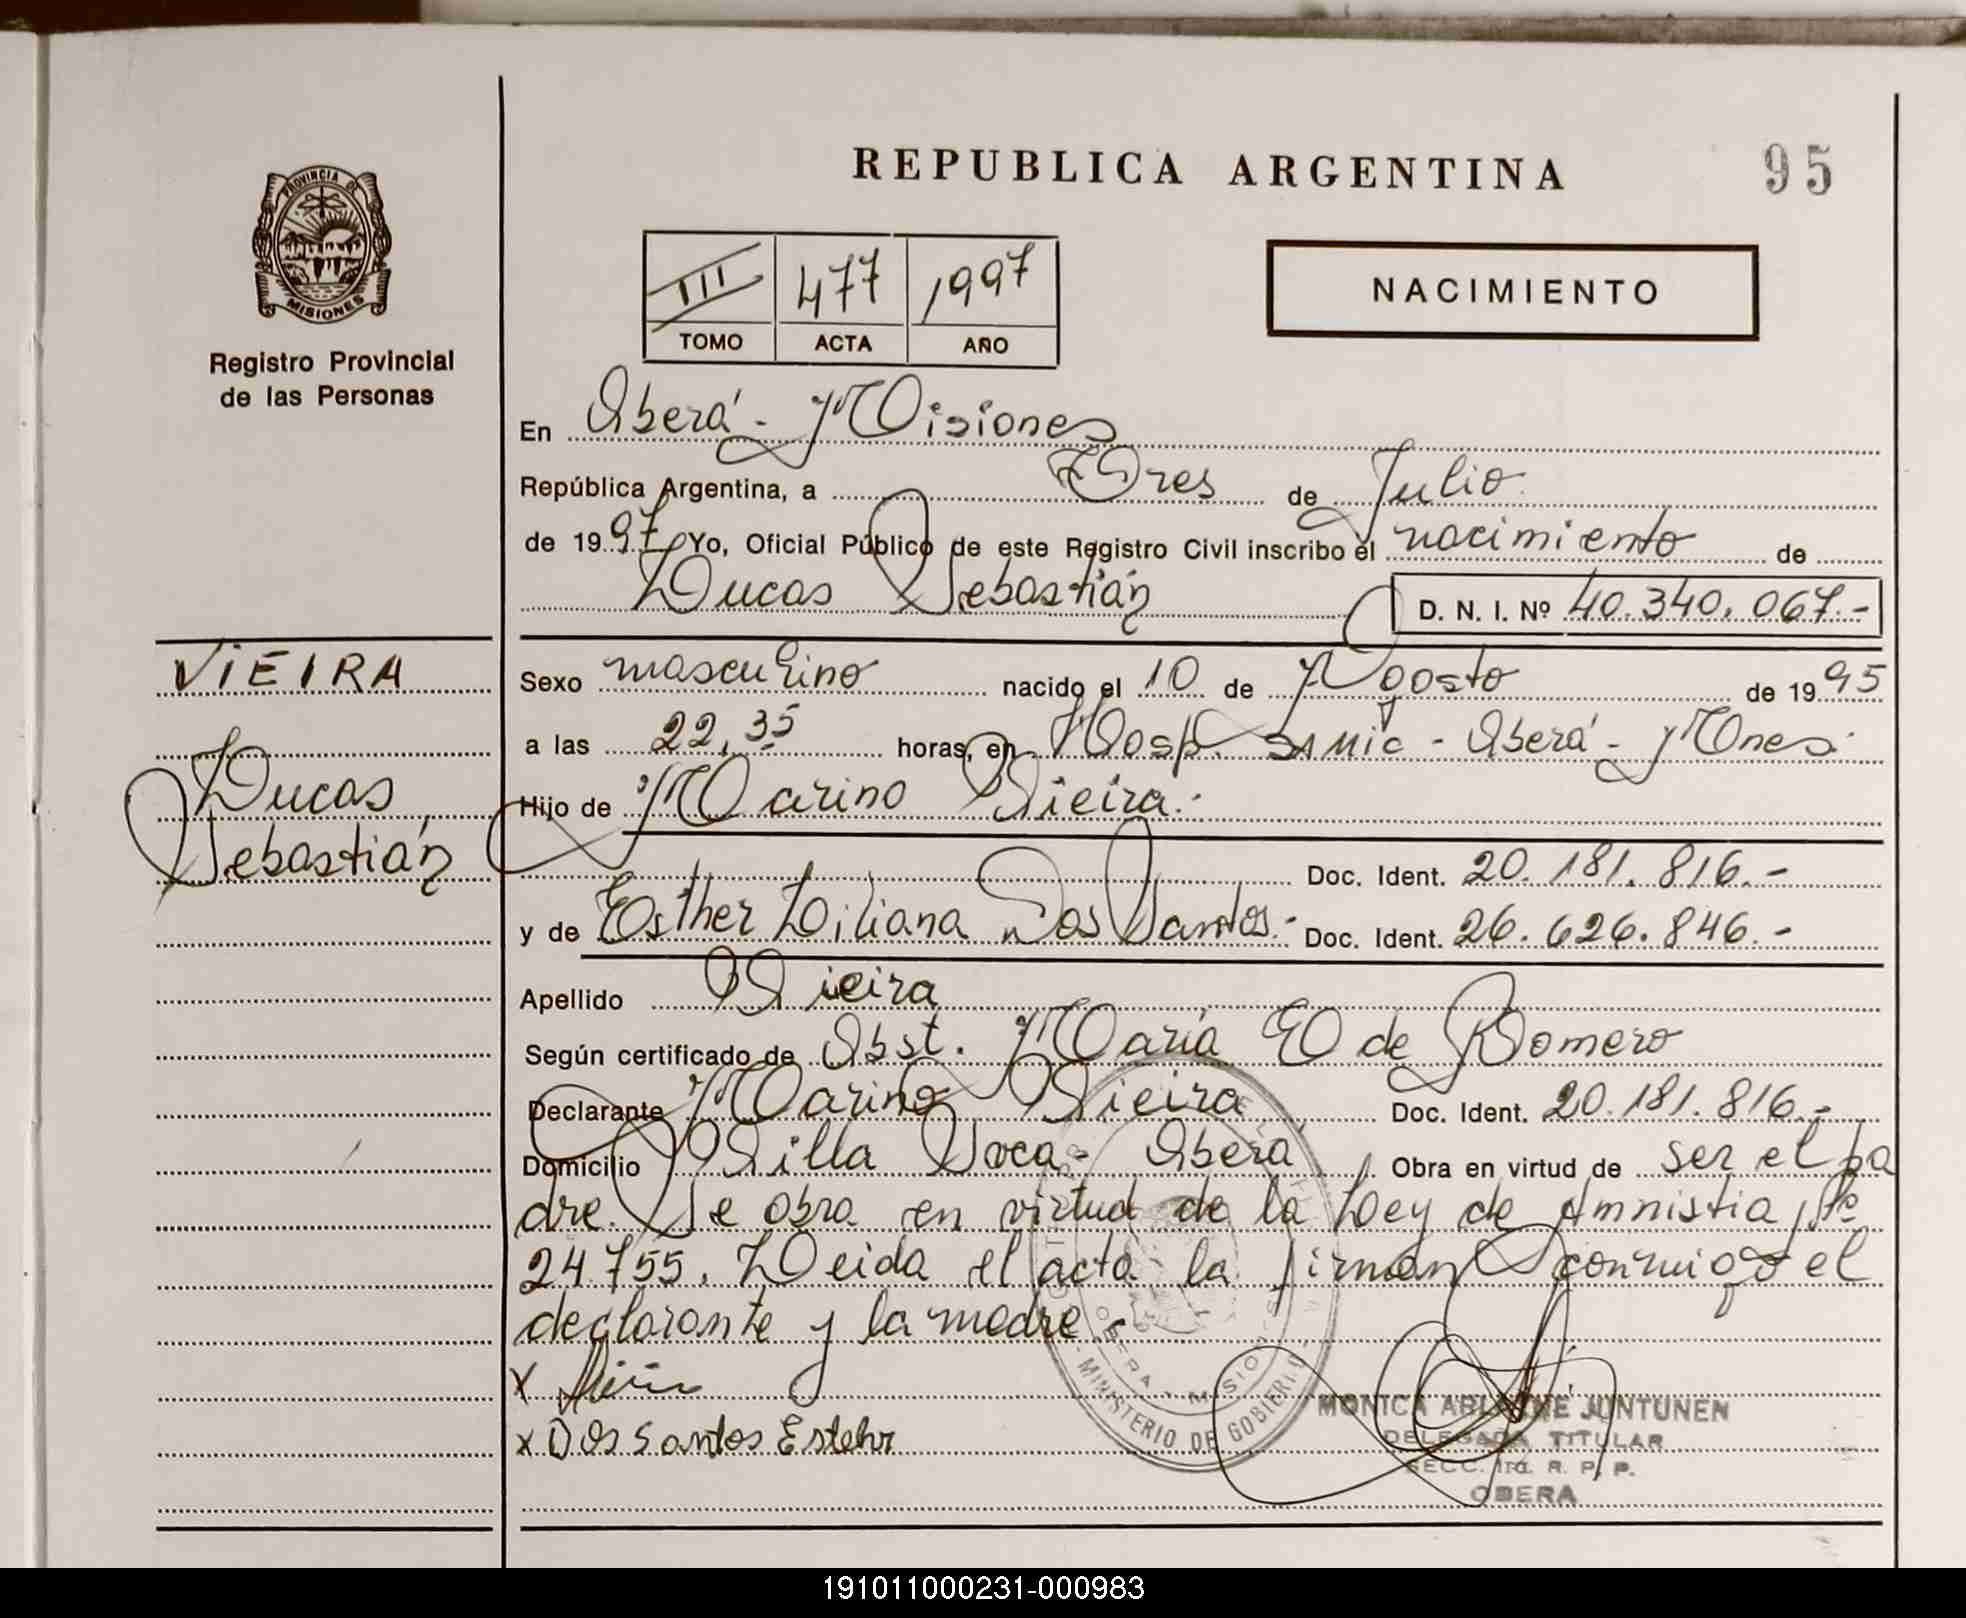 REPUBLICA ARGENTINA
95
PROVINCIA DE
MISIONES
Registro Provincial
de las Personas
III 477 1997
TOMO ACTA AÑO
NACIMIENTO
En Oberá - Misiones
República Argentina, a Tres de Julio
de 1997 Yo, Oficial Público de este Registro Civil inscribo el nacimiento de
Lucas Sebastián D. N. I. Nº 40.340.067.-
VIEIRA
Lucas
Sebastián
Sexo masculino nacido el 10 de Agosto de 1995
a las 22,35 horas, en Hosp. SAMIC - Oberá - Mnes.
Hijo de Marino Vieira.-
Doc. Ident. 20.181.816.-
y de Esther Liliana Dos Santos.- Doc. Ident. 26.626.846.-
Apellido Vieira
Según certificado de Obst. María E de Romero
Declarante Marino Vieira Doc. Ident. 20.181.816.-
Domicilio Villa Obera Obra en virtud de ser el pa
dre. Se obra en virtud de la Ley de Amnistia Nº
24.755. Leida el acta la firman conmigo el
declarante y la madre.-
X
X Dos Santos Estehr
MINISTERIO DE GOBIERNO
OBERA - MISIONES
MONICA ARIADNE JUNTUNEN
DELEGADA TITULAR
SECC. 1ra. R. P. P.
OBERA
191011000231-000983